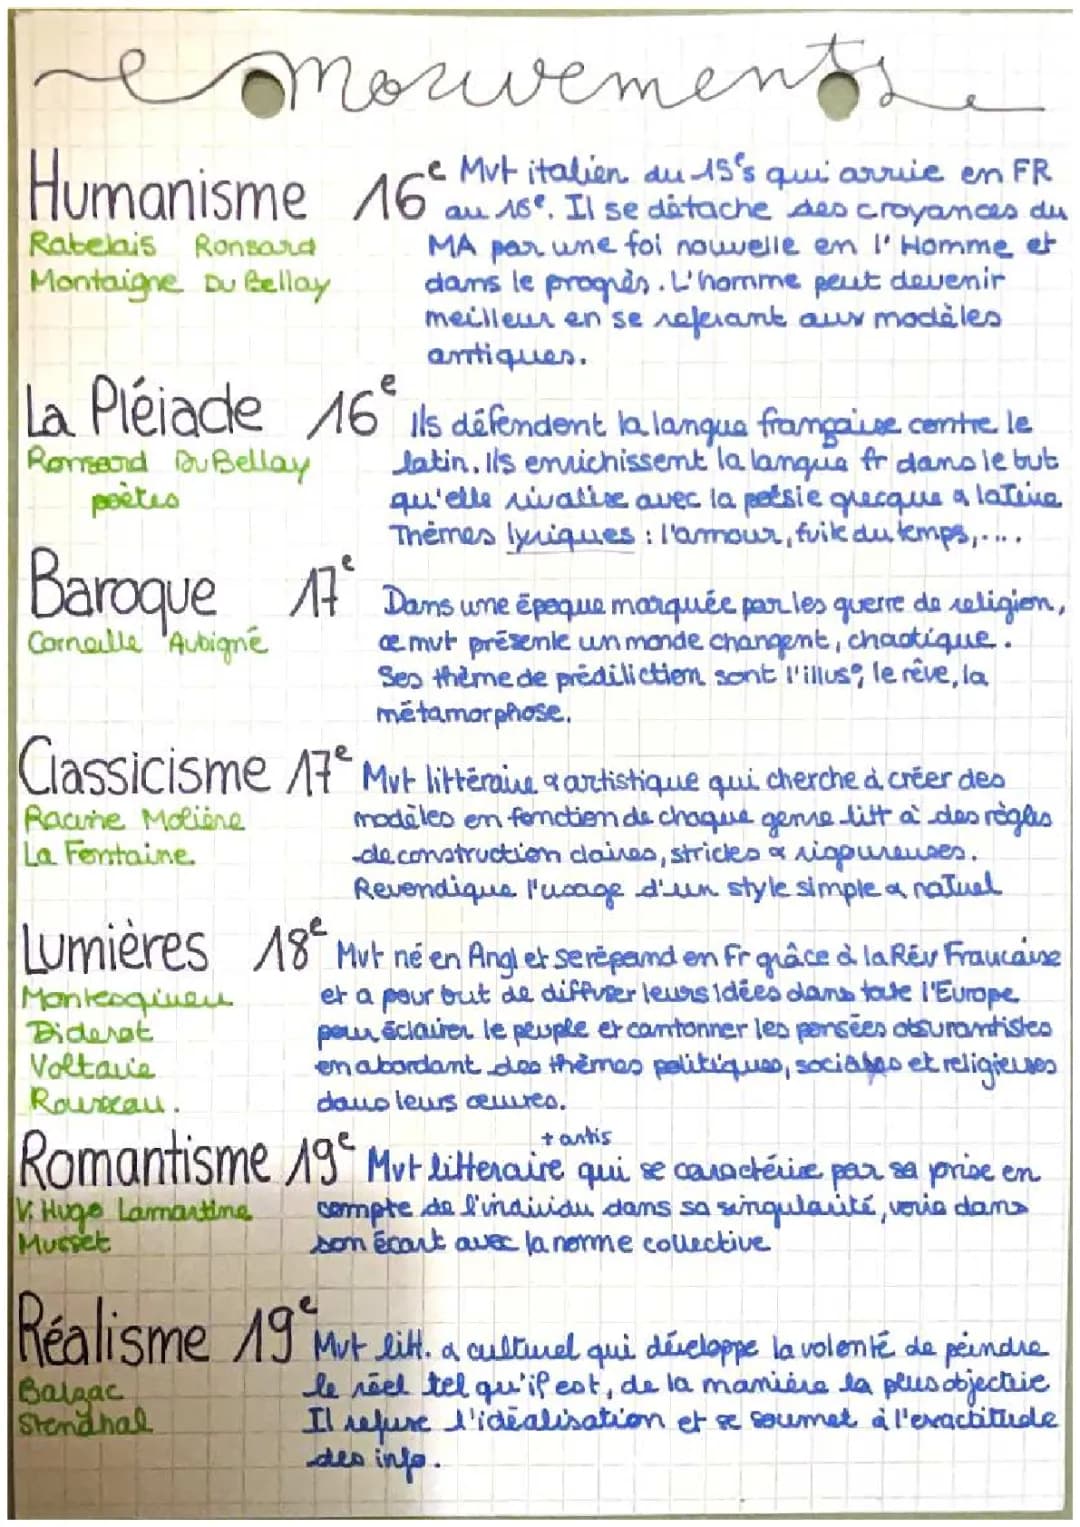 mouvements
Humanisme 16e Mvt italien du 15e s qui arrive en FR
au 16e. Il se détache des croyances du
Rabelais Ronsard MA par une foi nouvelle en l'Homme et
Montaigne Du Bellay dans le progrès. L'homme peut devenir
meilleur en se referant aux modèles
antiques.
La Pléiade 16e Ils défendent la langue française contre le
Ronsard Du Bellay latin. Ils enrichissent la langue fr dans le but
poètes qu'elle rivalise avec la poésie grecque & latine
Thèmes lyriques : l'amour, fuite du temps,....
Baroque 17e Dans une époque marquée par les guerre de religion,
Corneille Aubigné ce mvt présente un monde changent, chaotique.
Ses thème de prédiliction sont l'illus°, le rêve, la
métamorphose.
Classicisme 17e Mvt littéraire & artistique qui cherche à créer des
Racine Molière modèles en fonction de chaque genre litt à des règles
La Fontaine. de construction claires, strictes & rigoureuses.
Revendique l'usage d'un style simple & natuel
Lumières 18e Mvt né en Angl et se répand en Fr grâce à la Rév Francaise
Montesquieu et a pour but de diffuser leurs idées dans toute l'Europe
Diderot pour éclairer le peuple et cantonner les pensées obsurantistes
Voltaire en abordant des thèmes politiques, sociales et religieuses
Rousseau. dans leurs œuvres.
+ artis
Romantisme 19e Mvt litteraire qui se caractérise par sa prise en
V. Hugo Lamartine compte de l'individu dans sa singularité, voire dans
Musset son écart avec la norme collective
Réalisme 19e Mvt litt. & culturel qui développe la volonté de peindre
Balzac le réel tel qu'il est, de la manière la plus objective
Stendhal Il refuse l'idéalisation et se soumet à l'exactitude
des info.